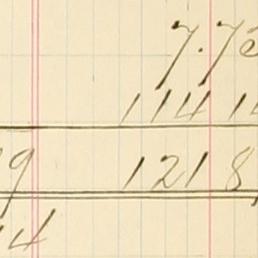 7.73
114 14
9 121 8
4